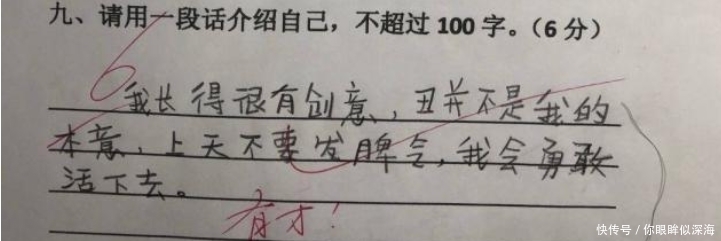 九、请用一段话介绍自己，不超过 100 字。（6 分）
6
我长得很有创意，丑并不是我的
本意，上天不要发脾气，我会勇敢
活下去。
有才！
快传号 / 你眼眸似深海